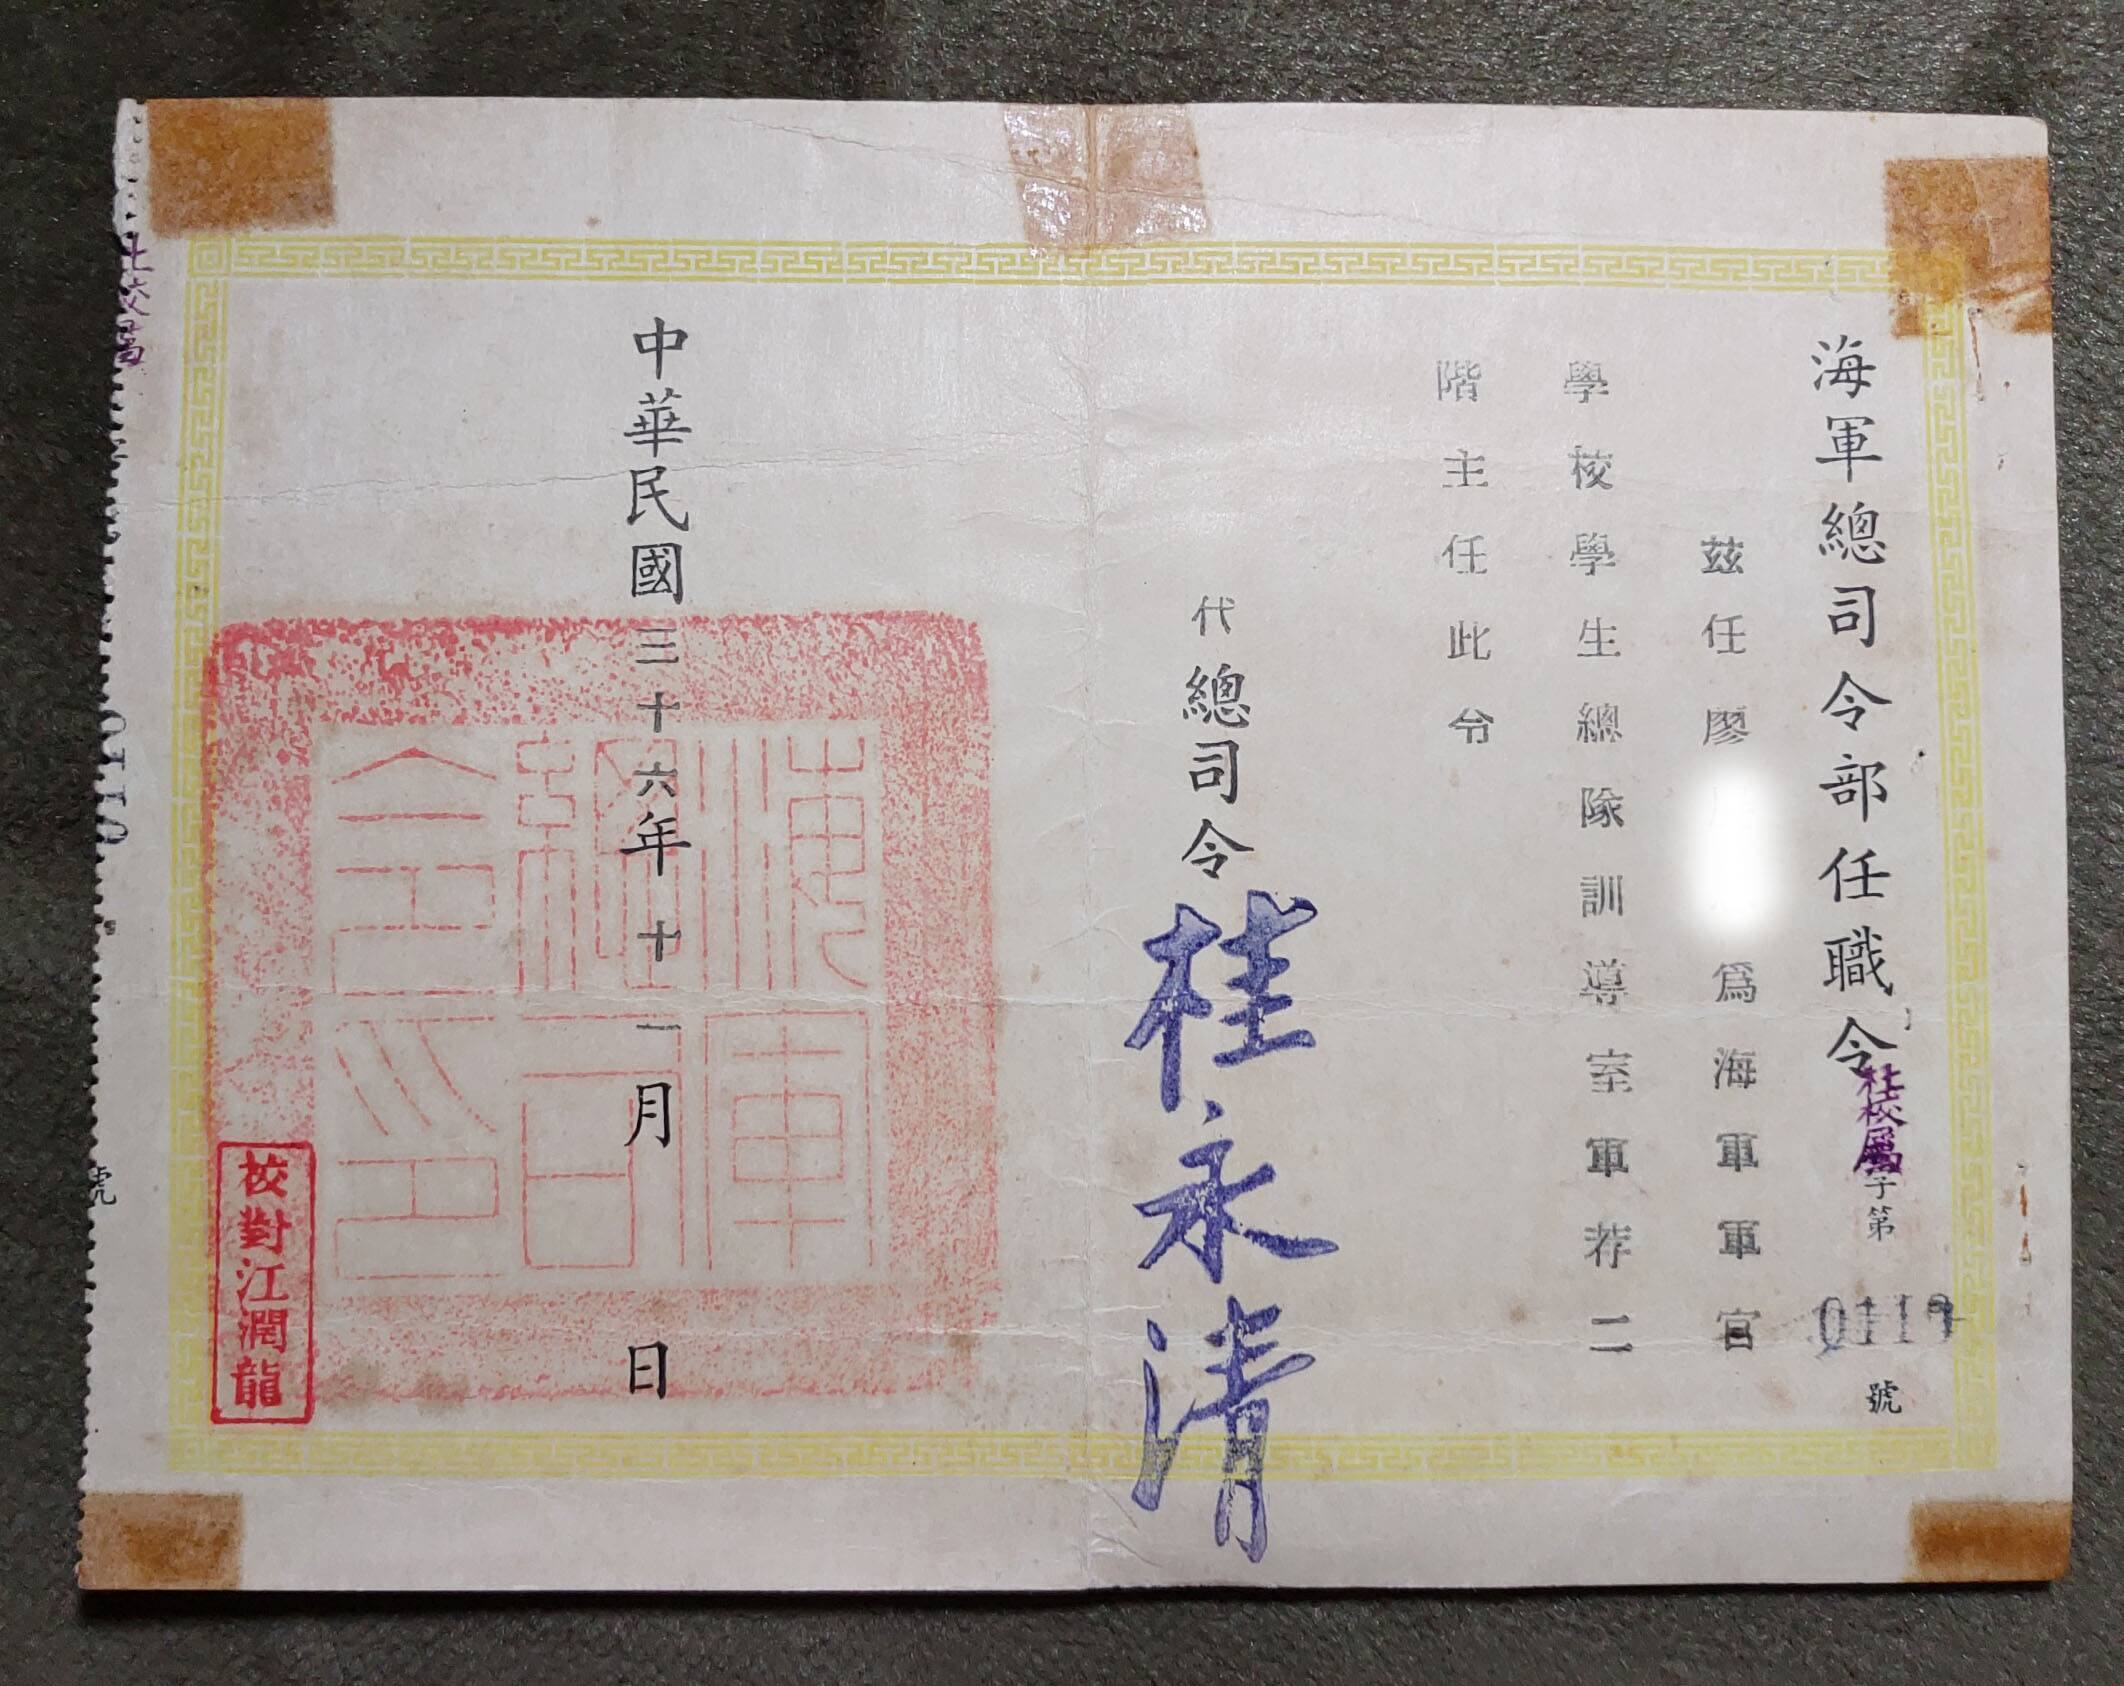 海軍總司令部任職令
桂校屬字第
號
茲任廖
為海軍軍官
學校學生總隊訓導室軍荐二
階主任此令
代總司令桂永清
中華民國三十六年十一月 日
海軍
總司
令印
校對江潤龍
號